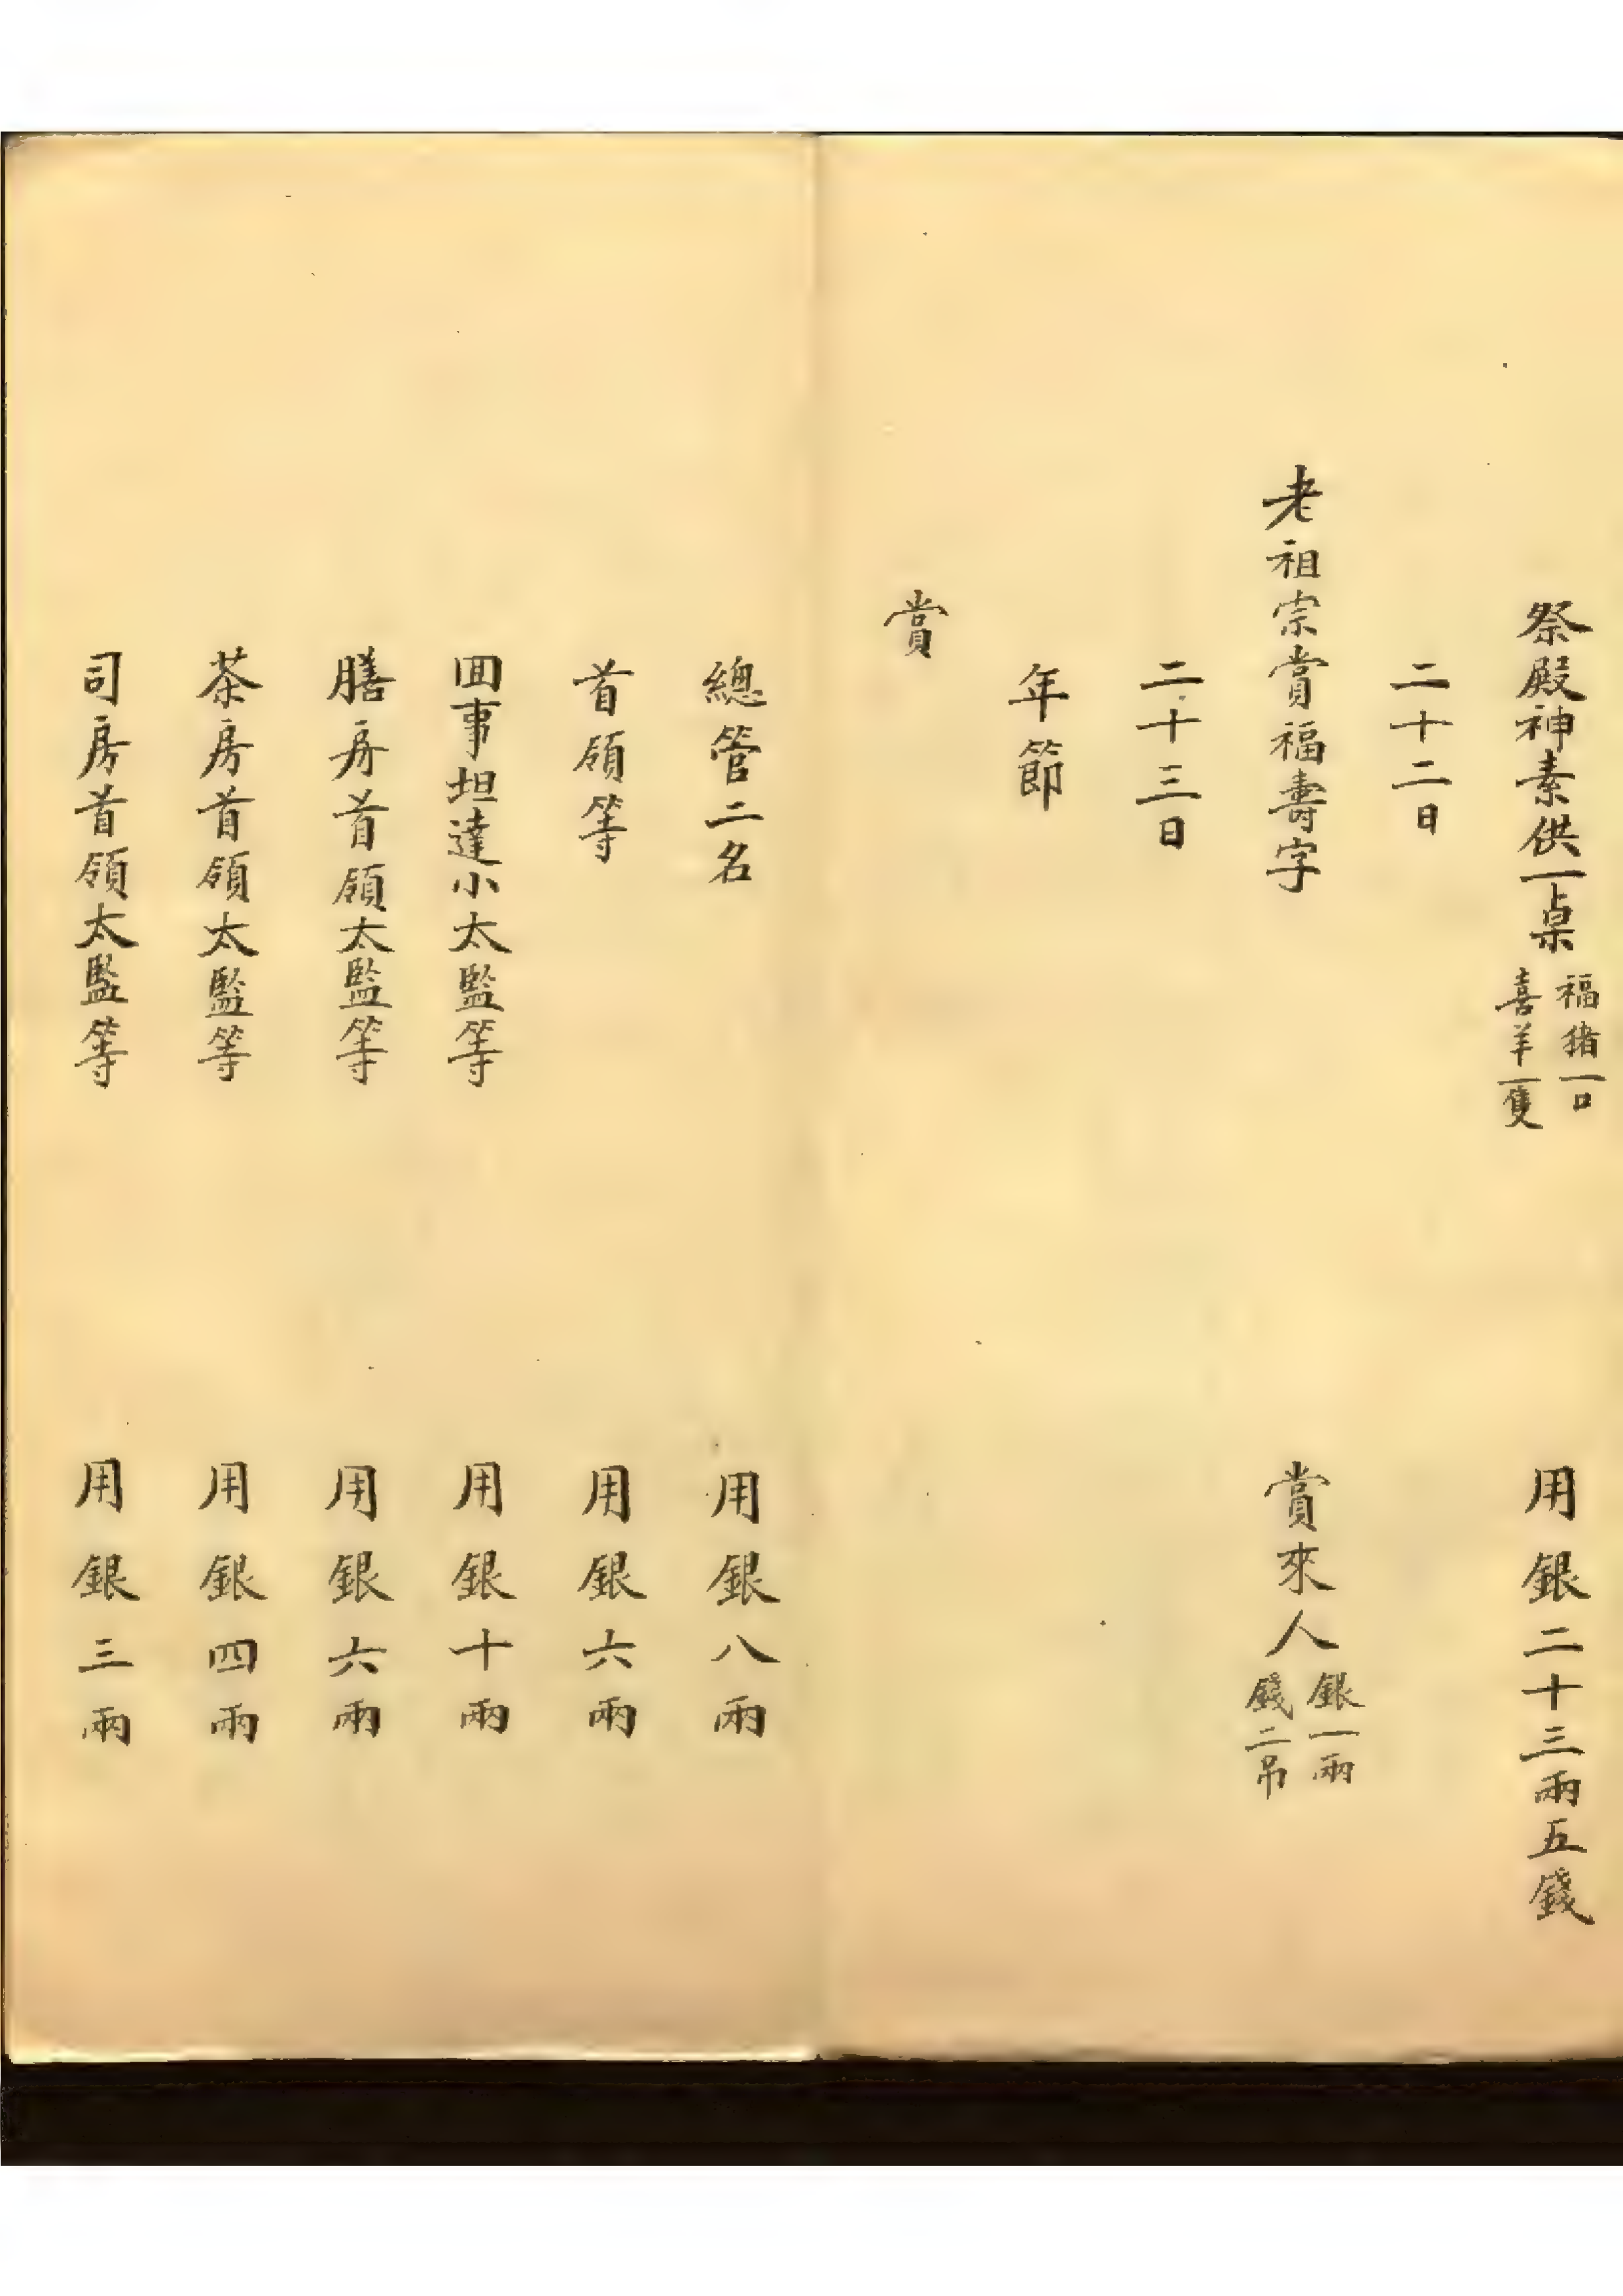 祭殿神素供一桌 福猪一口 喜羊一隻 用銀二十三兩五錢
二十二日
老祖宗賞福壽字 賞來人 銀一兩 錢二吊
二十三日
年節
賞
總管二名 用銀八兩
首領等 用銀六兩
回事坦達小太監等 用銀十兩
膳房首領太監等 用銀六兩
茶房首領太監等 用銀四兩
司房首領太監等 用銀三兩